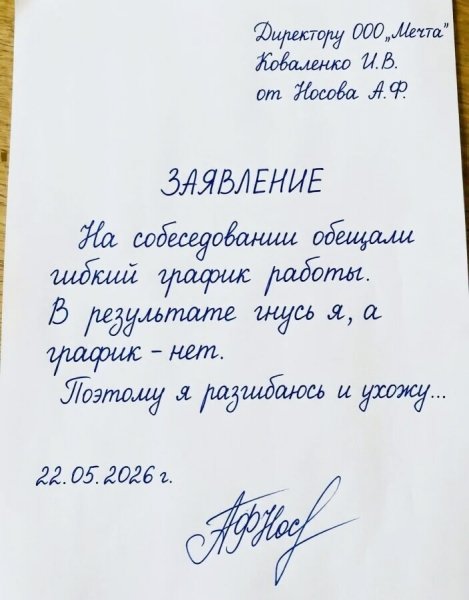 Директору ООО „Мечта"
Коваленко И.В.
от Носова А.Ф.
ЗАЯВЛЕНИЕ
На собеседовании обещали
гибкий график работы.
В результате гнусь я, а
график - нет.
Поэтому я разгибаюсь и ухожу...
22.05.2026 г.
АФНос